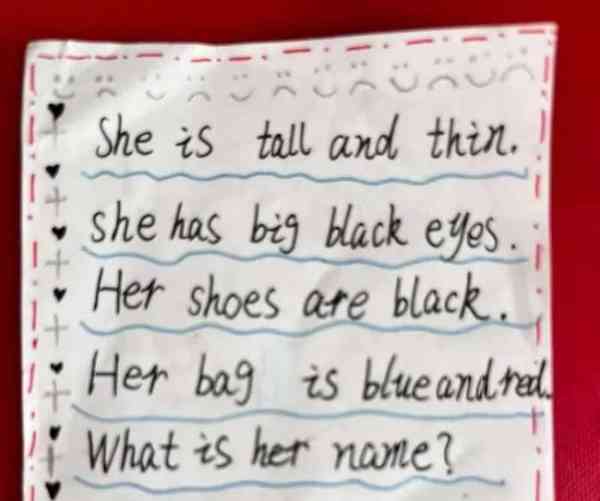 She is tall and thin.
she has big black eyes.
Her shoes are black.
Her bag is blue and red.
What is her name?